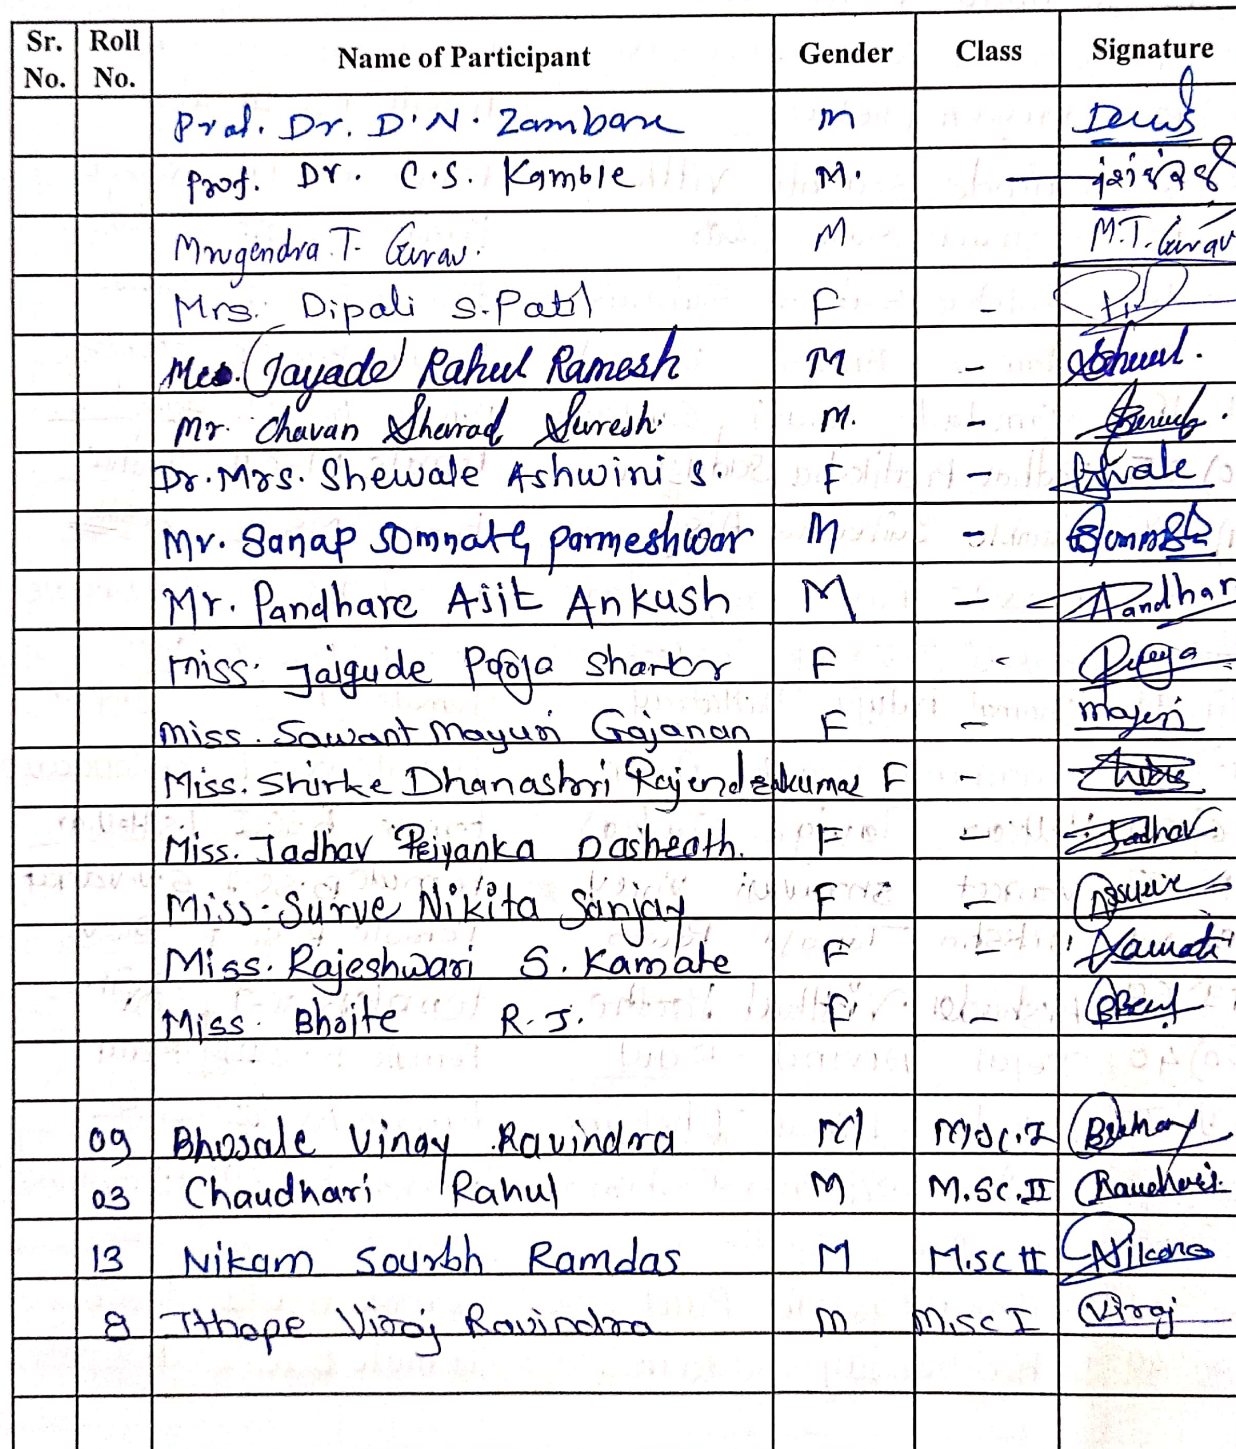 Sr. No. Roll No. Name of Participant Gender Class Signature
Prof. Dr. D.N. Zambare M
Prof. Dr. C.S. Kamble M.
Mrugendra T. Gurav. M M.T. Gurav
Mrs. Dipali S. Patil F -
(Jayade) Rahul Ramesh M -
Mr. Chavan Sharad Suresh. M. -
Dr. Mrs. Shewale Ashwini S. F -
Mr. Sanap Somnath parmeshwar M -
Mr. Pandhare Ajit Ankush M - Pandhar
Miss. Jaigude Pooja F -
Miss. Sawant Mayuri Gajanan F - mayuri
Miss. Shirke Dhanashri Rajendrakumar F -
Miss. Jadhav Priyanka Dashrath. F - Jadhav
Miss. Surve Nikita Sanjay F -
Miss. Rajeshwari S. Kamate F - Kamate
Miss. Bhoite R. J. F -
09 Bhosale Vinay Ravindra M M.Sc.I
03 Chaudhari Rahul M M.Sc.II
13 Nikam Sourbh Ramdas M M.sc II Nikam
8 Ithape Viraj Ravindra M M.sc I Viraj